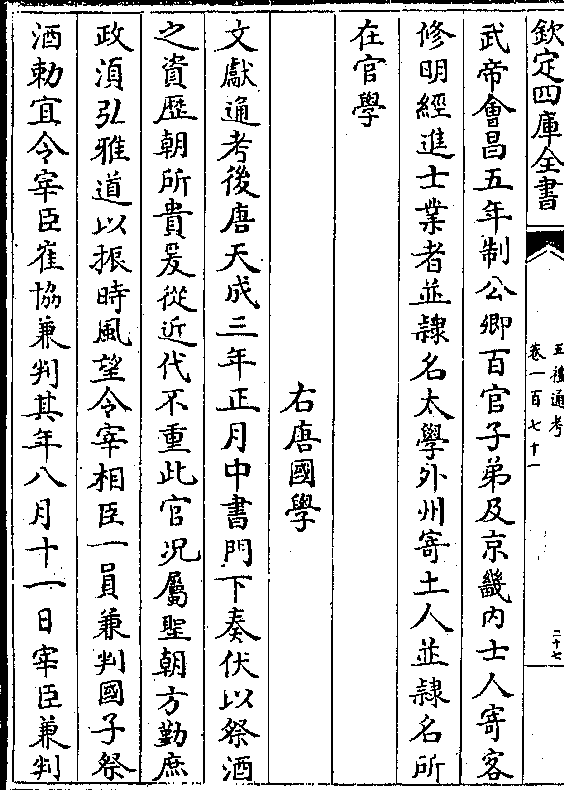 欽定四庫全書
五禮通考
卷一百七十一
二十七
武帝會昌五年制公卿百官子弟及京畿內士人寄客
修明經進士業者並隸名太學外州寄士人並隸名所
在官學
右唐國學
文獻通考後唐天成三年正月中書門下奏伏以祭酒
之資歷朝所貴爰從近代不重此官况屬聖朝方勤庶
政湏弘雅道以振時風望令宰相臣一員兼判國子祭
酒勅宜令宰臣崔協兼判其年八月十一日宰臣兼判